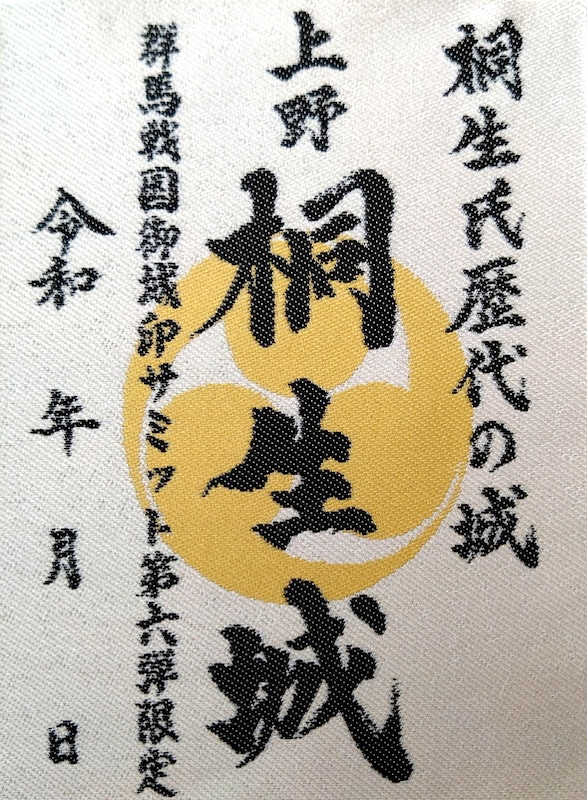 桐生氏歴代の城
上野
桐生城
群馬戦国御城印サミット第六弾限定
令和 年 月 日